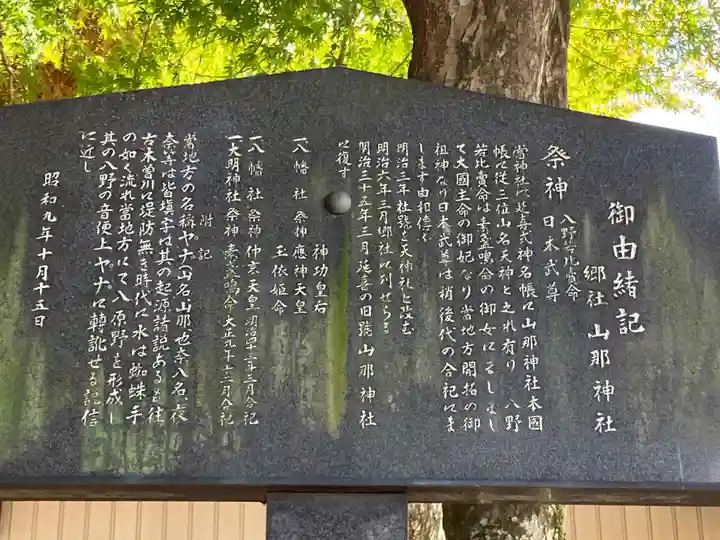 御由緒記
郷社 山那神社
祭神 八野若比賣命
日本武尊
當神社は延喜式神名帳に山那神社本國
帳に従三位山名天神と之れ有り 八野
若比賣命は素盞鳴命の御女にましまし
て大國主命の御妃なり當地方開拓の御
祖神なり日本武尊は稍後代の合祀にま
します由和徳
明治三年社號を天神社と改む
明治六年三月郷社に列せらる
明治三十五年三月延喜の旧號山那神社
に復す
神功皇后
一八幡社 祭神 應神天皇
玉依姫命
一八幡社 祭神 仲哀天皇 明治四十三年三月合祀
一大明神社 祭神 素盞鳴命 大正九年十二月合祀
附記
當地方の名称ヤナ(山名山那、也奈八名、衣
奈等は皆填字は其の起源諸説あるも往
古木曽川に堤防無き時代に水は蜘蛛手
の如く流れ當地方にて八原野を形成し
其の八野の音便上ヤナに轉訛せる説信
に近し
昭和九年十月十五日